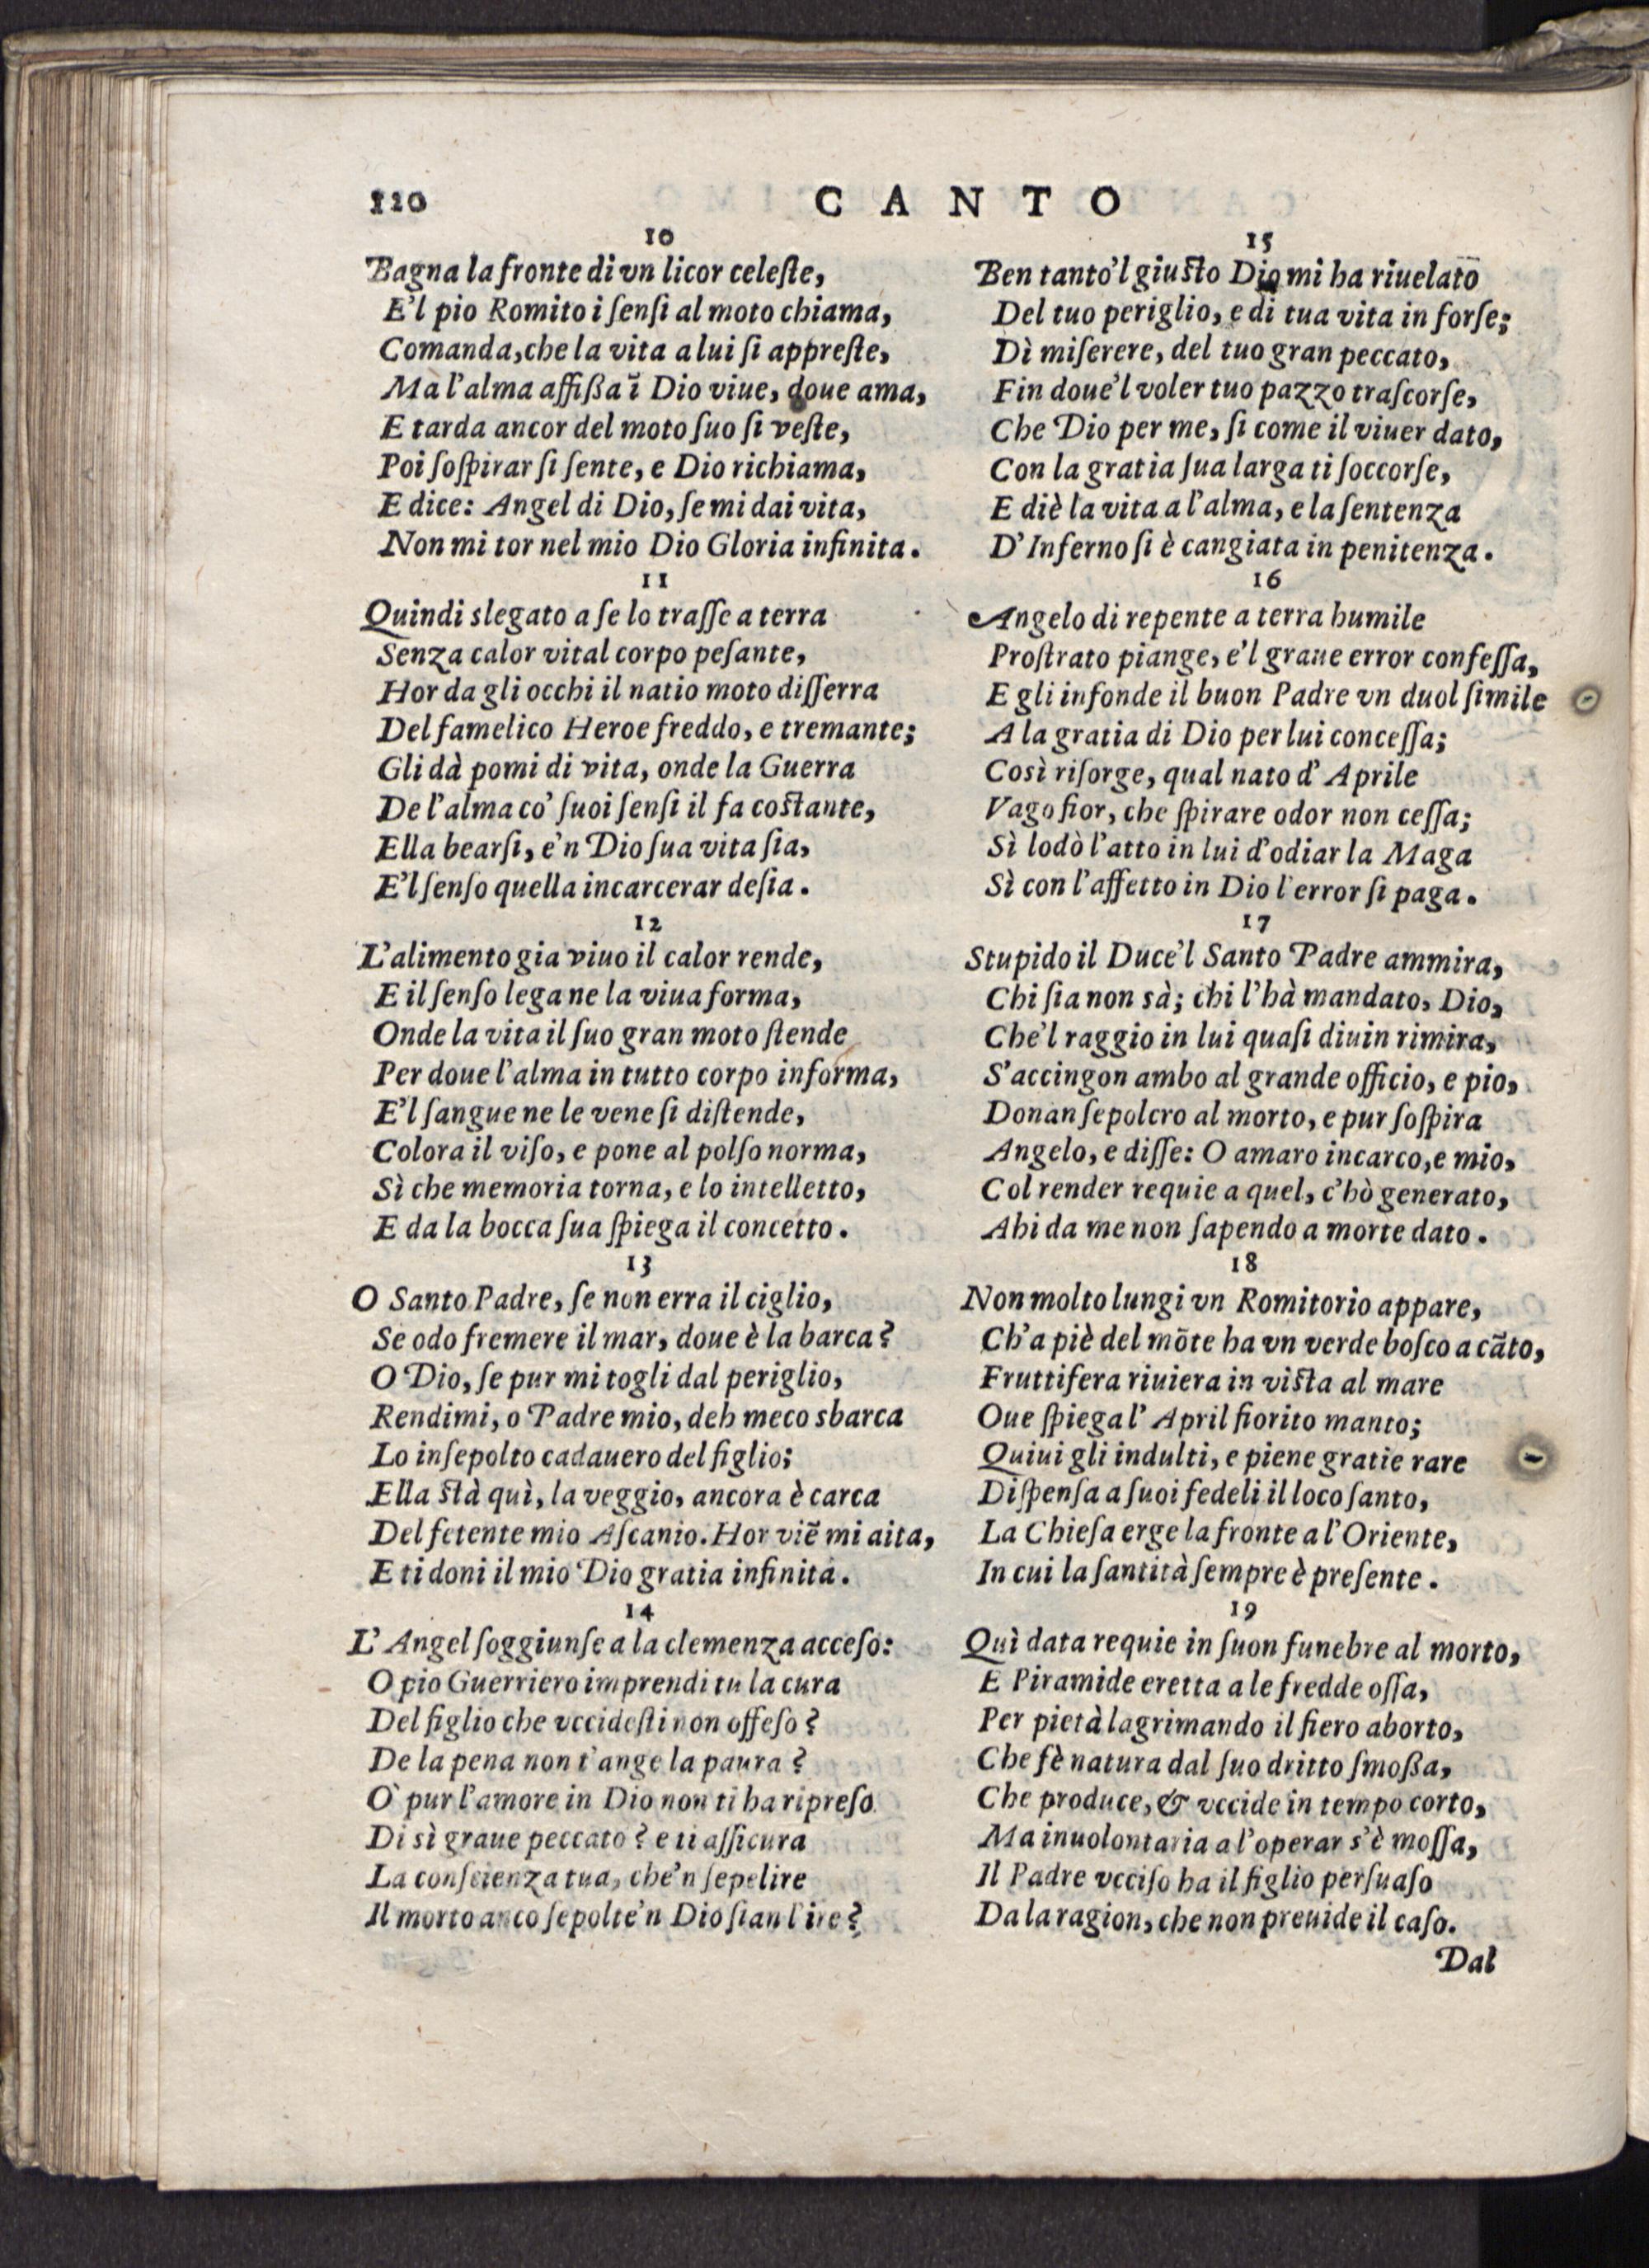 120
CANTO
10
Bagna la fronte di vn licor celeſte,
E'l pio Romito i ſenſi al moto chiama,
Comanda, che la vita a lui ſi appreſte,
Ma l'alma affißa ī Dio viue, doue ama,
E tarda ancor del moto ſuo ſi veſte,
Poi ſoſpirar ſi ſente, e Dio richiama,
E dice: Angel di Dio, ſe mi dai vita,
Non mi tor nel mio Dio Gloria infinita.
11
Quindi slegato a ſe lo traſſe a terra
Senza calor vital corpo peſante,
Hor da gli occhi il natio moto diſſerra
Del famelico Heroe freddo, e tremante;
Gli dà pomi di vita, onde la Guerra
De l'alma co' ſuoi ſenſi il fa coſtante,
Ella bearſi, e'n Dio ſua vita ſia,
E'l ſenſo quella incarcerar deſia.
12
L'alimento gia viuo il calor rende,
E il ſenſo lega ne la viua forma,
Onde la vita il ſuo gran moto ſtende
Per doue l'alma in tutto corpo informa,
E'l ſangue ne le vene ſi diſtende,
Colora il viſo, e pone al polſo norma,
Sì che memoria torna, e lo intelletto,
E da la bocca ſua ſpiega il concetto.
13
O Santo Padre, ſe non erra il ciglio,
Se odo fremere il mar, doue è la barca?
O Dio, ſe pur mi togli dal periglio,
Rendimi, o Padre mio, deh meco sbarca
Lo inſepolto cadauero del figlio;
Ella ſtà quì, la veggio, ancora è carca
Del fetente mio Aſcanio. Hor viē mi aita,
E ti doni il mio Dio gratia infinita.
14
L'Angel ſoggiunſe a la clemenza acceſo:
O pio Guerriero imprendi tu la cura
Del figlio che vccideſti non offeſo?
De la pena non t'ange la paura?
O pur l'amore in Dio non ti ha ripreſo
Di sì graue peccato? e ti aſſicura
La conſcienza tua, che'n ſepelire
Il morto anco ſepolte'n Dio ſian l'ire?
15
Ben tanto'l giuſto Dio mi ha riuelato
Del tuo periglio, e di tua vita in forſe;
Dì miſerere, del tuo gran peccato,
Fin doue'l voler tuo pazzo traſcorſe,
Che Dio per me, ſi come il viuer dato,
Con la gratia ſua larga ti ſoccorſe,
E diè la vita a l'alma, e la ſentenza
D'Inferno ſi è cangiata in penitenza.
16
Angelo di repente a terra humile
Proſtrato piange, e'l graue error confeſſa,
E gli infonde il buon Padre vn duol ſimile
A la gratia di Dio per lui conceſſa;
Così riſorge, qual nato d'Aprile
Vago fior, che ſpirare odor non ceſſa;
Sì lodò l'atto in lui d'odiar la Maga
Sì con l'affetto in Dio l'error ſi paga.
17
Stupido il Duce'l Santo Padre ammira,
Chi ſia non sà; chi l'hà mandato, Dio,
Che'l raggio in lui quaſi diuin rimira,
S'accingon ambo al grande officio, e pio,
Donan ſepolcro al morto, e pur ſoſpira
Angelo, e diſſe: O amaro incarco, e mio,
Col render requie a quel, c'hò generato,
Ahi da me non ſapendo a morte dato.
18
Non molto lungi vn Romitorio appare,
Ch'a piè del mōte ha vn verde boſco a cāto,
Fruttifera riuiera in viſta al mare
Oue ſpiega l'April fiorito manto;
Quiui gli indulti, e piene gratie rare
Diſpenſa a ſuoi fedeli il loco ſanto,
La Chieſa erge la fronte a l'Oriente,
In cui la ſantità ſempre è preſente.
19
Quì data requie in ſuon funebre al morto,
E Piramide eretta a le fredde oſſa,
Per pietà lagrimando il fiero aborto,
Che fè natura dal ſuo dritto ſmoßa,
Che produce, & vccide in tempo corto,
Ma inuolontaria a l'operar s'è moſſa,
Il Padre vcciſo ha il figlio perſuaſo
Da la ragion, che non preuide il caſo.
Dal